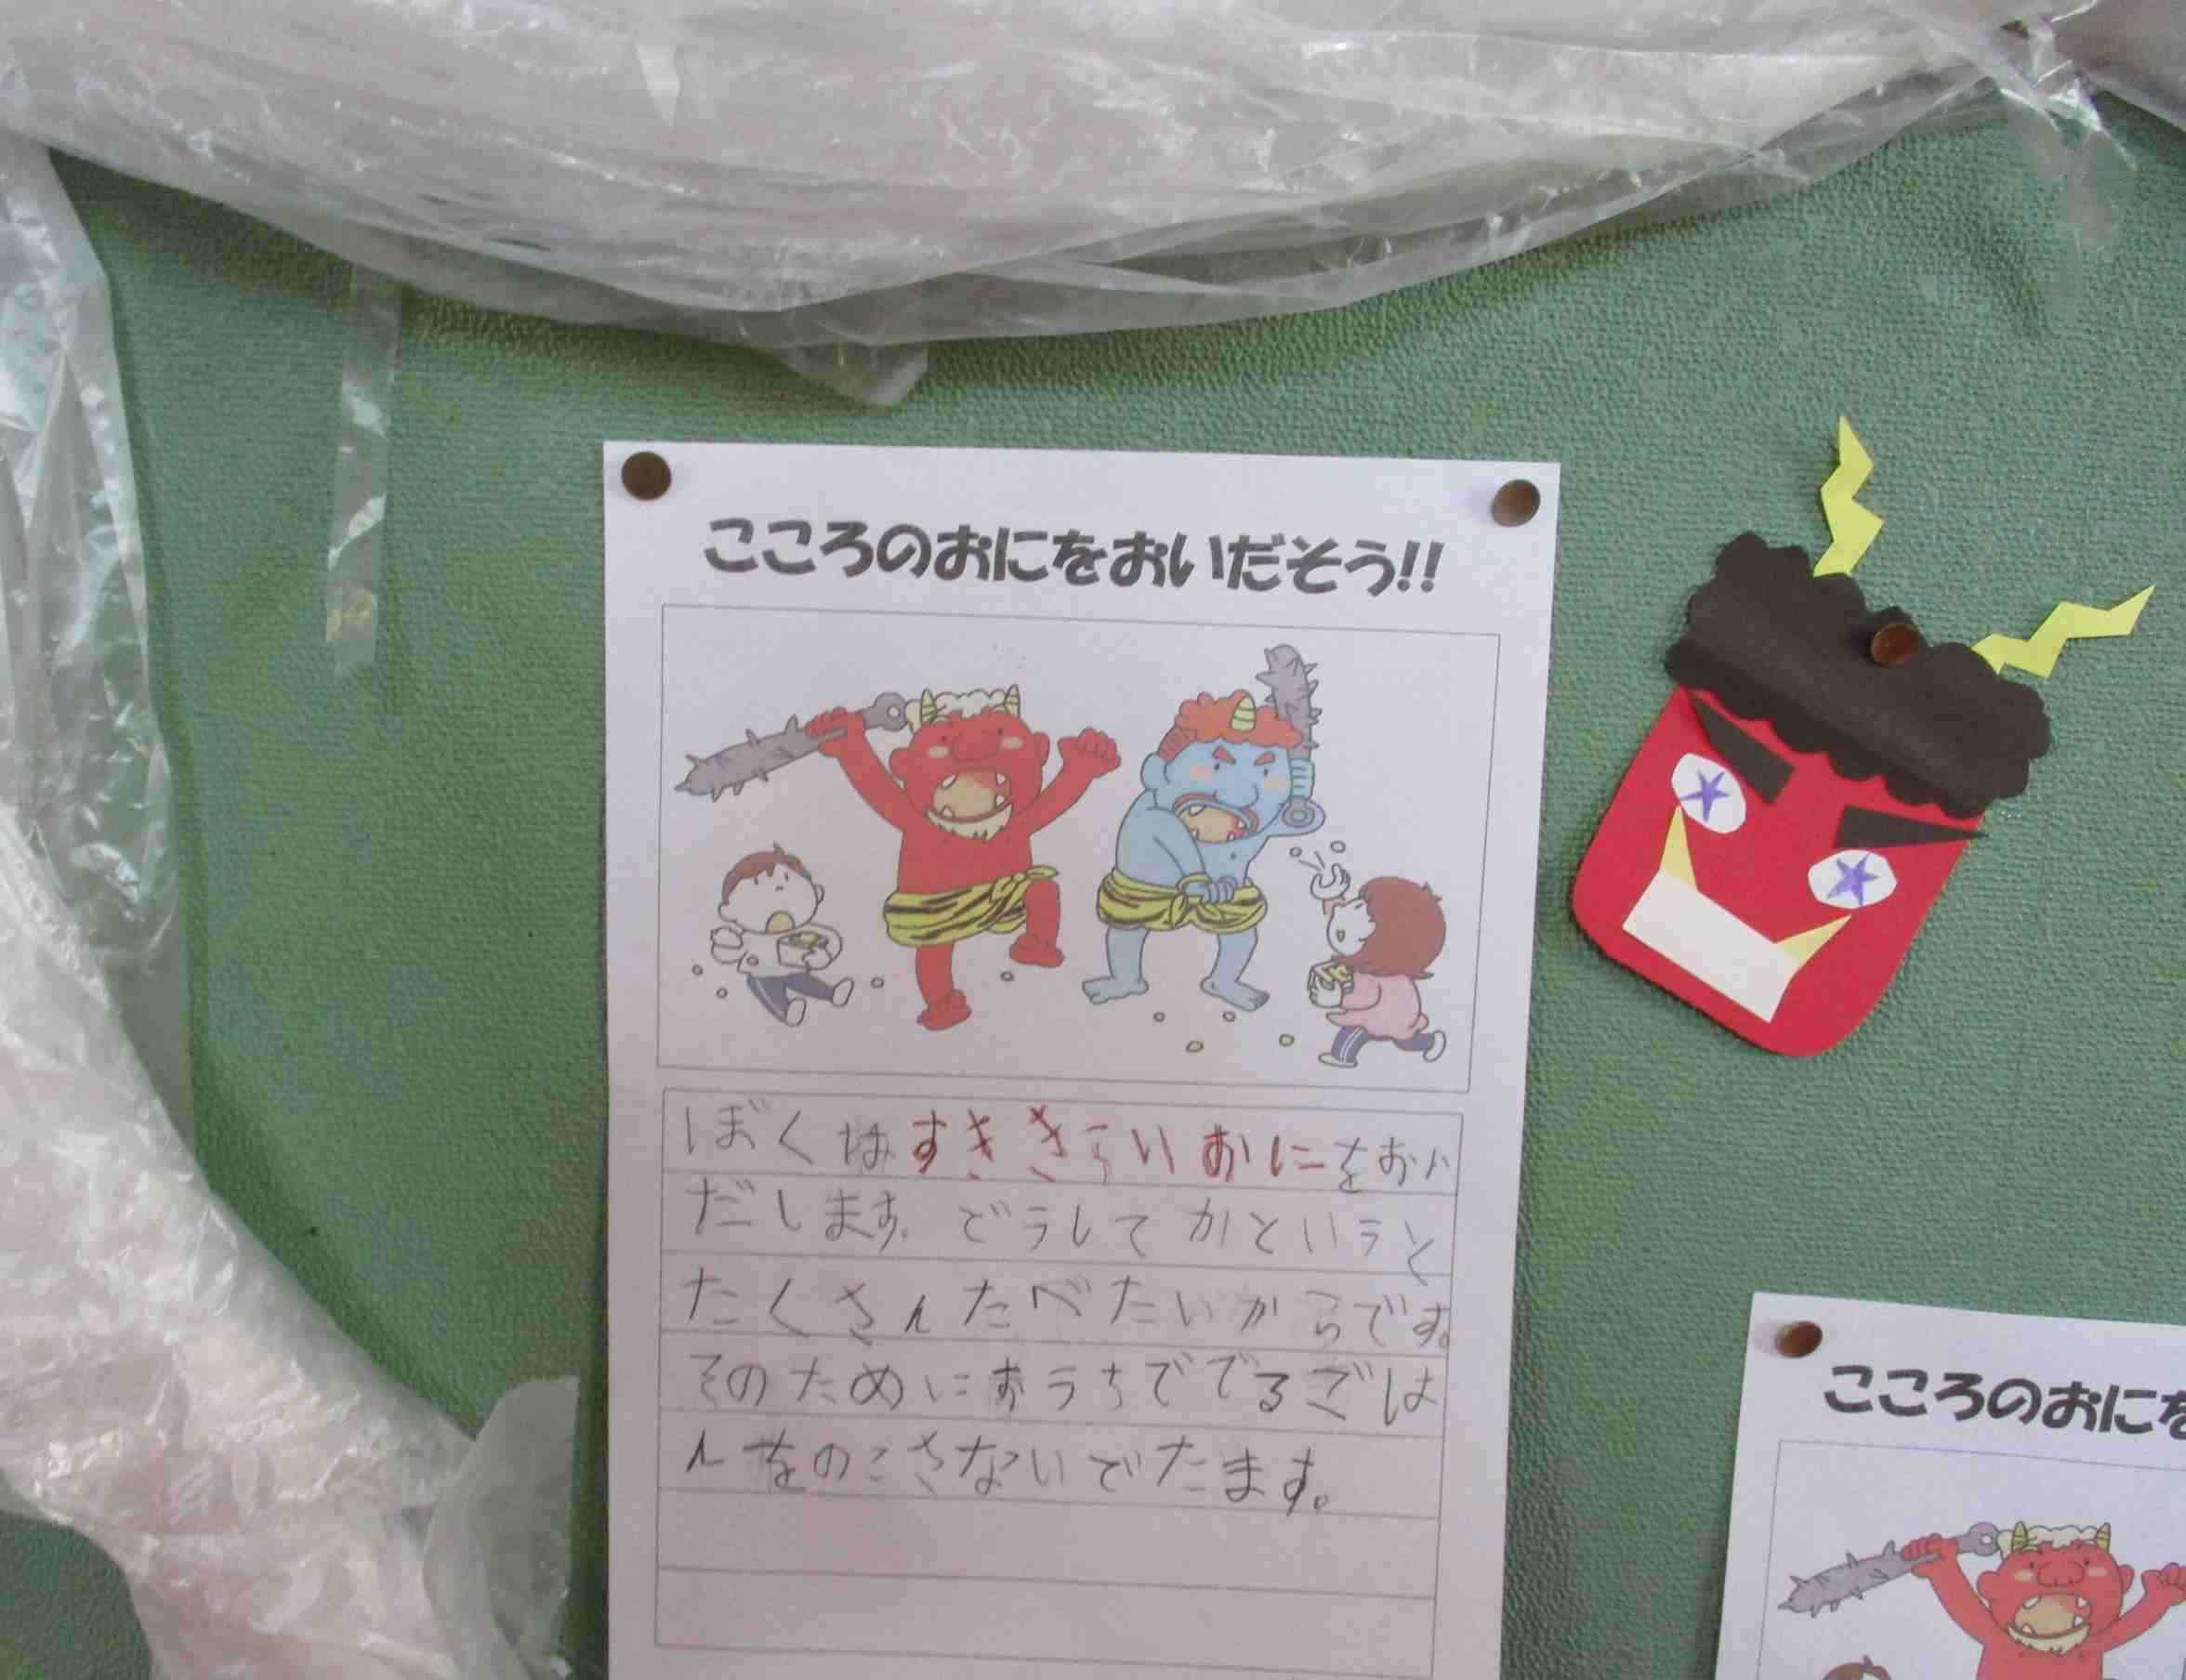 こころのおにをおいだそう!!
ぼくはすききらいおにをおい
だします。どうしてかというと
たくさんたべたいからです。
そのためにおうちででるごは
んをのこさないでたます。
こころのおにを